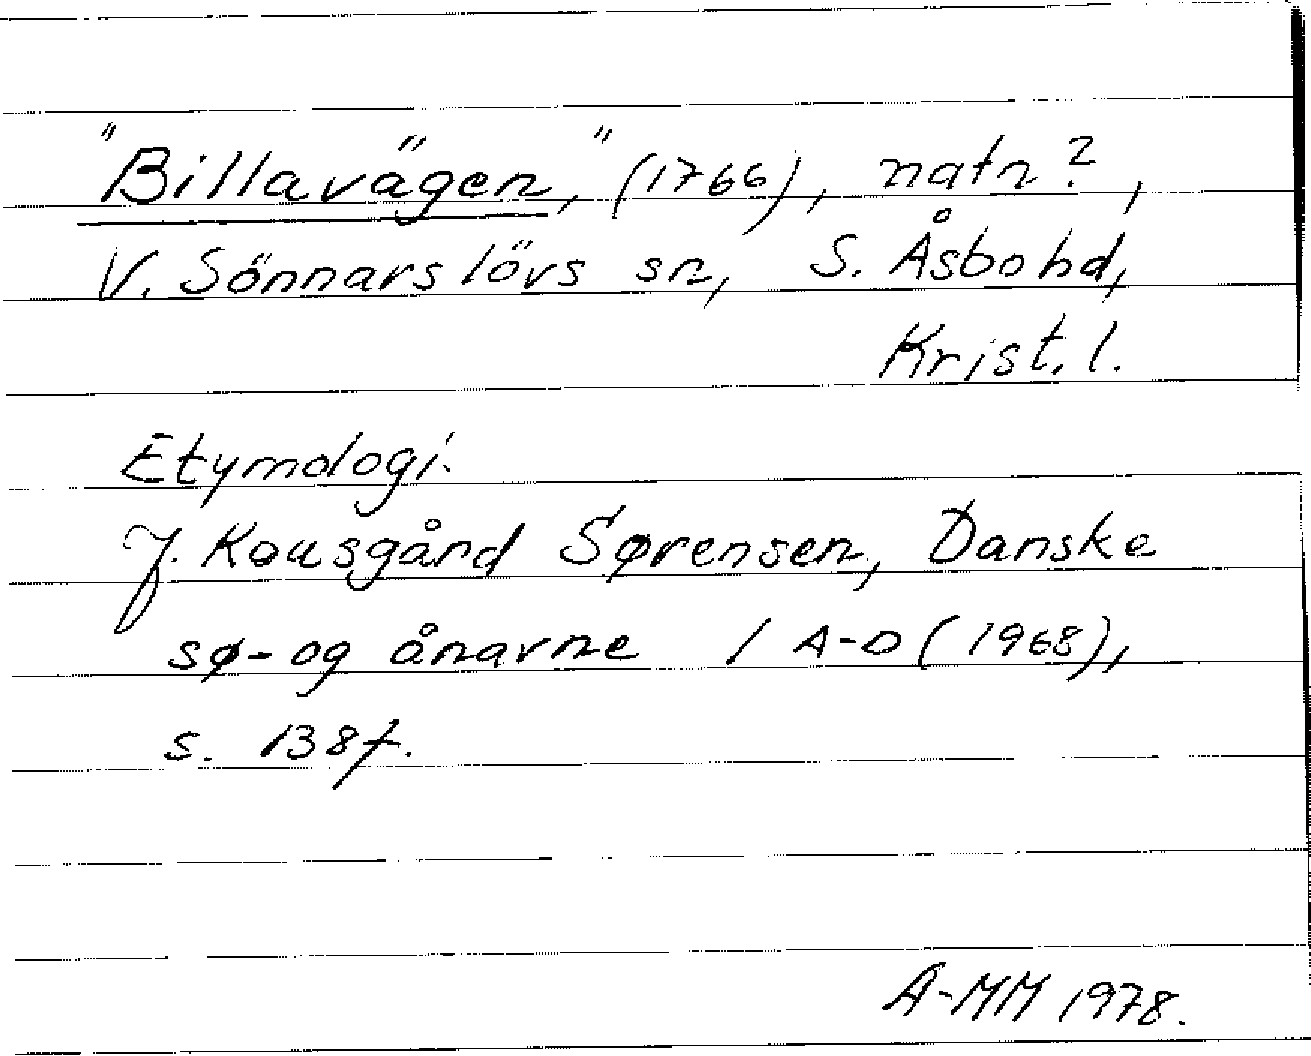 "Billavägen," (1766), natn?,
V. Sönnarslövs sn, S. Åsbohd,
Krist. l.
Etymologi.
J. Kousgård Sørensen, Danske
sø- og ånavne 1 A-D (1968),
s. 138f.
A-MM 1978.